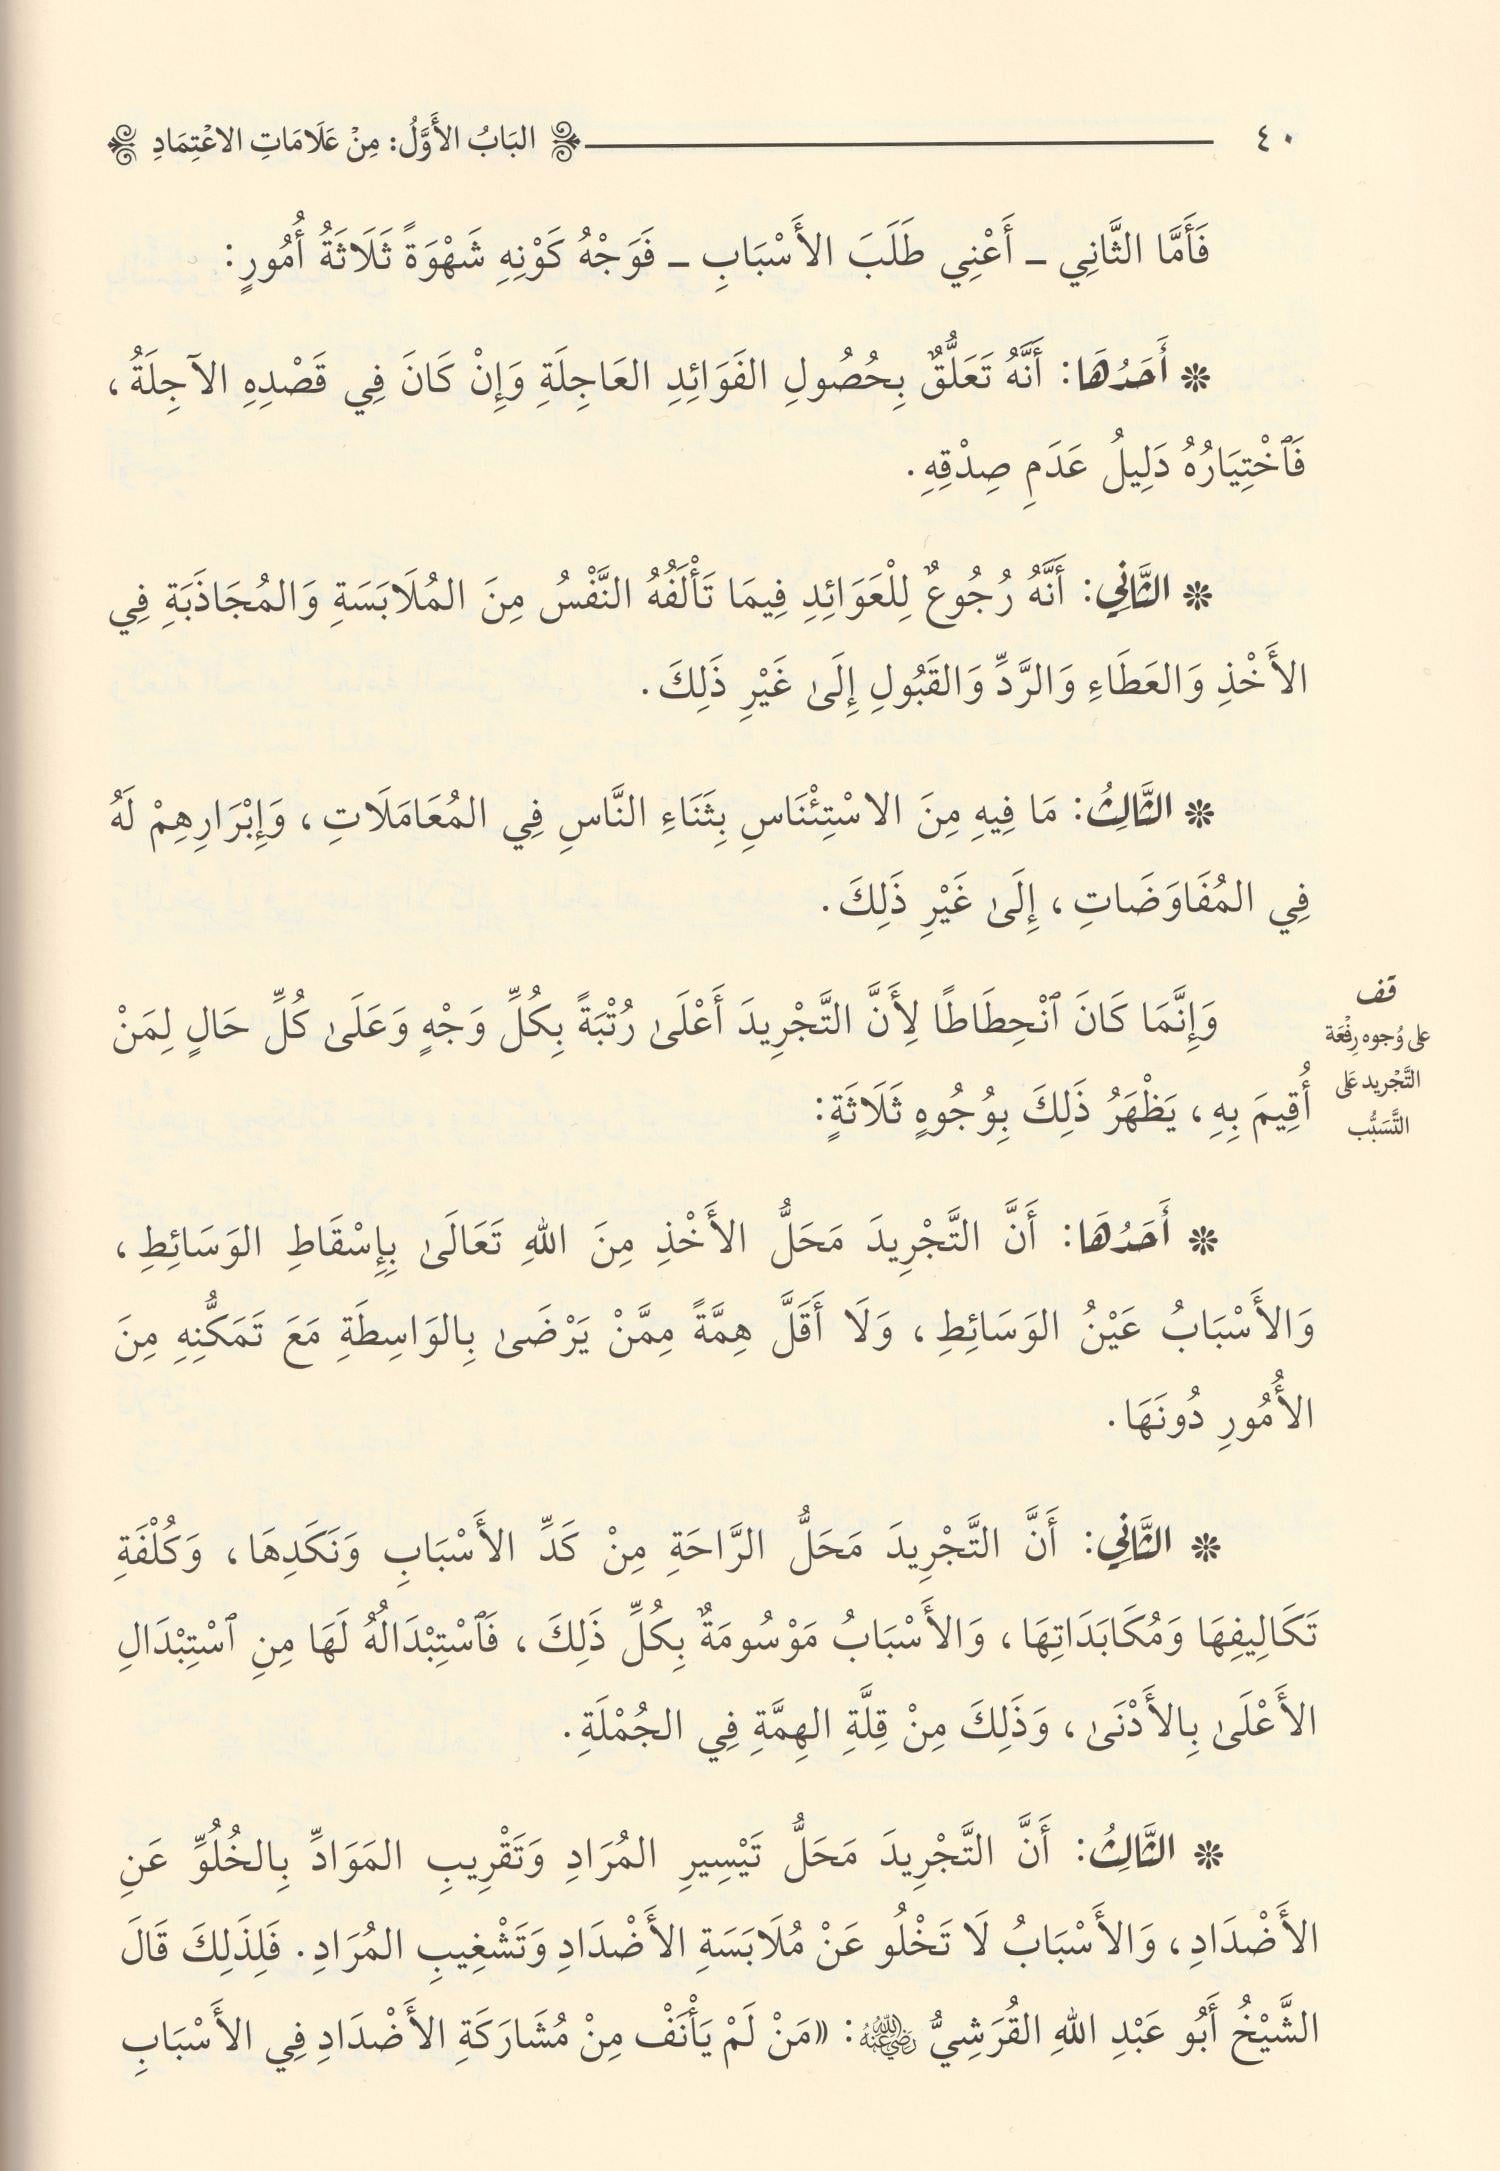 ٤٠ البَابُ الأَوَّلُ: مِنْ عَلَامَاتِ الاعْتِمَادِ
فَأَمَّا الثَّانِي ـ أَعْنِي طَلَبَ الأَسْبَابِ ـ فَوَجْهُ كَوْنِهِ شَهْوَةً ثَلَاثَةُ أُمُورٍ:
❊ أَحَدُهَا: أَنَّهُ تَعَلُّقٌ بِحُصُولِ الفَوَائِدِ العَاجِلَةِ وَإِنْ كَانَ فِي قَصْدِهِ الآجِلَةُ،
فَٱخْتِيَارُهُ دَلِيلُ عَدَمِ صِدْقِهِ.
❊ الثَّانِي: أَنَّهُ رُجُوعٌ لِلْعَوَائِدِ فِيمَا تَأْلَفُهُ النَّفْسُ مِنَ المُلَابَسَةِ وَالمُجَاذَبَةِ فِي
الأَخْذِ وَالعَطَاءِ وَالرَّدِّ وَالقَبُولِ إِلَىٰ غَيْرِ ذَلِكَ.
❊ الثَّالِثُ: مَا فِيهِ مِنَ الاسْتِئْنَاسِ بِثَنَاءِ النَّاسِ فِي المُعَامَلَاتِ، وَإِبْرَارِهِمْ لَهُ
فِي المُفَاوَضَاتِ، إِلَىٰ غَيْرِ ذَلِكَ.
قف
على وُجوه رِفْعَة
التَّجْريد عَلى
التَّسَبُّب
وَإِنَّمَا كَانَ ٱنْحِطَاطًا لِأَنَّ التَّجْرِيدَ أَعْلَىٰ رُتْبَةً بِكُلِّ وَجْهٍ وَعَلَىٰ كُلِّ حَالٍ لِمَنْ
أُقِيمَ بِهِ، يَظْهَرُ ذَلِكَ بِوُجُوهٍ ثَلَاثَةٍ:
❊ أَحَدُهَا: أَنَّ التَّجْرِيدَ مَحَلُّ الأَخْذِ مِنَ اللهِ تَعَالَىٰ بِإِسْقَاطِ الوَسَائِطِ،
وَالأَسْبَابُ عَيْنُ الوَسَائِطِ، وَلَا أَقَلَّ هِمَّةً مِمَّنْ يَرْضَىٰ بِالوَاسِطَةِ مَعَ تَمَكُّنِهِ مِنَ
الأُمُورِ دُونَهَا.
❊ الثَّانِي: أَنَّ التَّجْرِيدَ مَحَلُّ الرَّاحَةِ مِنْ كَدِّ الأَسْبَابِ وَنَكَدِهَا، وَكُلْفَةِ
تَكَالِيفِهَا وَمُكَابَدَاتِهَا، وَالأَسْبَابُ مَوْسُومَةٌ بِكُلِّ ذَلِكَ، فَٱسْتِبْدَالُهُ لَهَا مِنِ ٱسْتِبْدَالِ
الأَعْلَىٰ بِالأَدْنَىٰ، وَذَلِكَ مِنْ قِلَّةِ الهِمَّةِ فِي الجُمْلَةِ.
❊ الثَّالِثُ: أَنَّ التَّجْرِيدَ مَحَلُّ تَيْسِيرِ المُرَادِ وَتَقْرِيبِ المَوَادِّ بِالخُلُوِّ عَنِ
الأَضْدَادِ، وَالأَسْبَابُ لَا تَخْلُو عَنْ مُلَابَسَةِ الأَضْدَادِ وَتَشْغِيبِ المُرَادِ. فَلِذَلِكَ قَالَ
الشَّيْخُ أَبُو عَبْدِ اللهِ القُرَشِيُّ رضي الله عنه: «مَنْ لَمْ يَأْنَفْ مِنْ مُشَارَكَةِ الأَضْدَادِ فِي الأَسْبَابِ